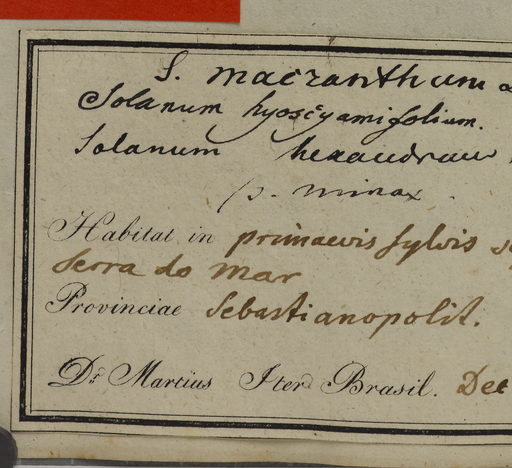 S. macranthum
Solanum hyoscyamifolium.
Solanum hexandrum
β. minax.
Habitat in primaevis sylvis
Serra do Mar
Provinciae Sebastianopolit.
Dr. Martius Iter Brasil. Dec